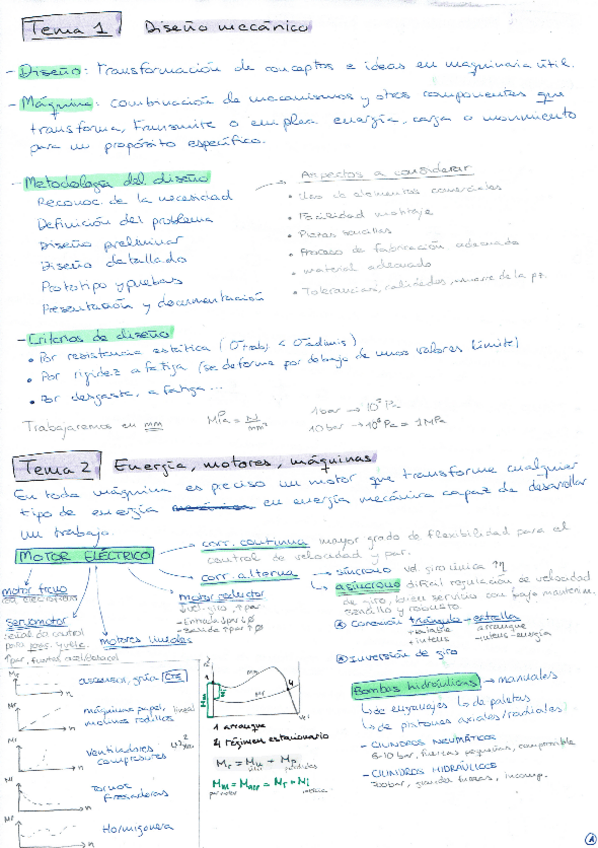 Tema 1 Diseño mecánico
- Diseño: transformación de conceptos e ideas en maquinaria útil.
- Máquina: combinación de mecanismos y otros componentes que
transforma, transmite o emplea energía, carga o movimiento
para un propósito específico.
- Metodología del diseño
Reconoc. de la necesidad
Definición del problema
Diseño preliminar
Diseño detallado
Prototipo y pruebas
Presentación y documentación
Aspectos a considerar
• Uso de elementos comerciales
• Facilidad montaje
• Piezas sencillas
• Proceso de fabricación adecuado
• material adecuado
• Tolerancias, calidades, de la pz.
- Criterios de diseño
• Por resistencia estática (σtrabj < σadmis)
• Por rigidez a fatiga (se deforme por debajo de unos valores límite)
• Por desgaste, a fatiga...
Trabajaremos en mm MPa = N/mm² 1bar → 10⁵ Pa
10bar → 10⁶ Pa = 1MPa
Tema 2 Energía, motores, máquinas
En toda máquina es preciso un motor que transforme cualquier
tipo de energía en energía mecánica capaz de desarrollar
un trabajo.
MOTOR ELÉCTRICO
corr. continua mayor grado de flexibilidad para el
control de velocidad y par.
corr. alterna → síncrono vel giro única
→ asíncrono difícil regulación de velocidad
de giro, buen servicio con bajo mantenim.
sencillo y robusto
Conexión triángulo - estrella
arranque
Inversión de giro
motor freno
servomotor
motores lineales
motor reductor
ascensor, grúa CTE
máquinas papel, lineal
molinos rodillos
ventiladores
compresores
tornos
fresadoras
Hormigonera
1 arranque
4 régimen estacionario
Bombas hidráulicas → manuales
↳ de engranajes ↳ de paletas
↳ de pistones axiales/radiales
- CILINDROS NEUMÁTICOS
6-10 bar, fuerzas pequeñas, compresible
- CILINDROS HIDRÁULICOS
300bar, grandes fuerzas, incomp.